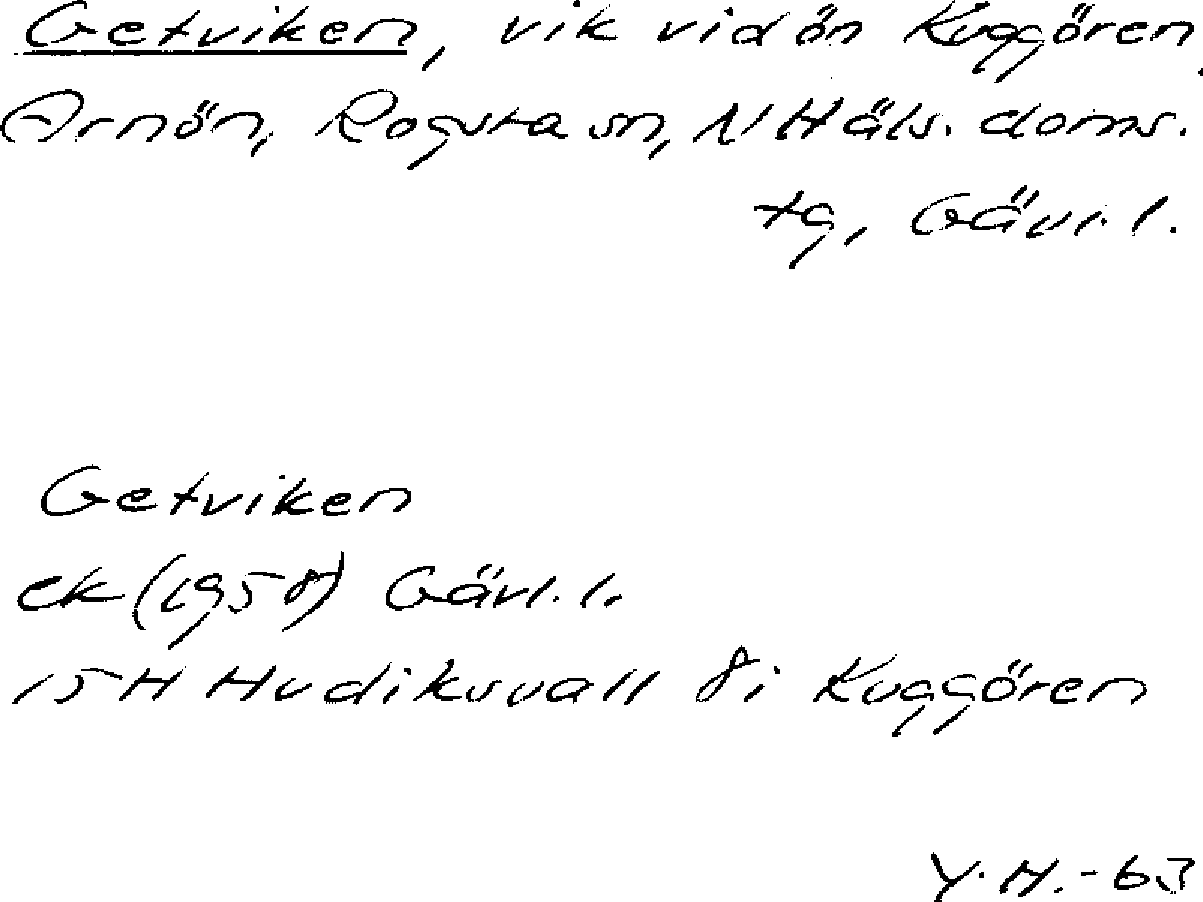 Getviken, vik vid ön Kuggören,
Arnön, Rogsta sn, N Häls. doms.
tg, Gävl. l.
Getviken
ek (1958) Gävl. l.
15H Hudiksvall 8i Kuggören
Y. H. -63